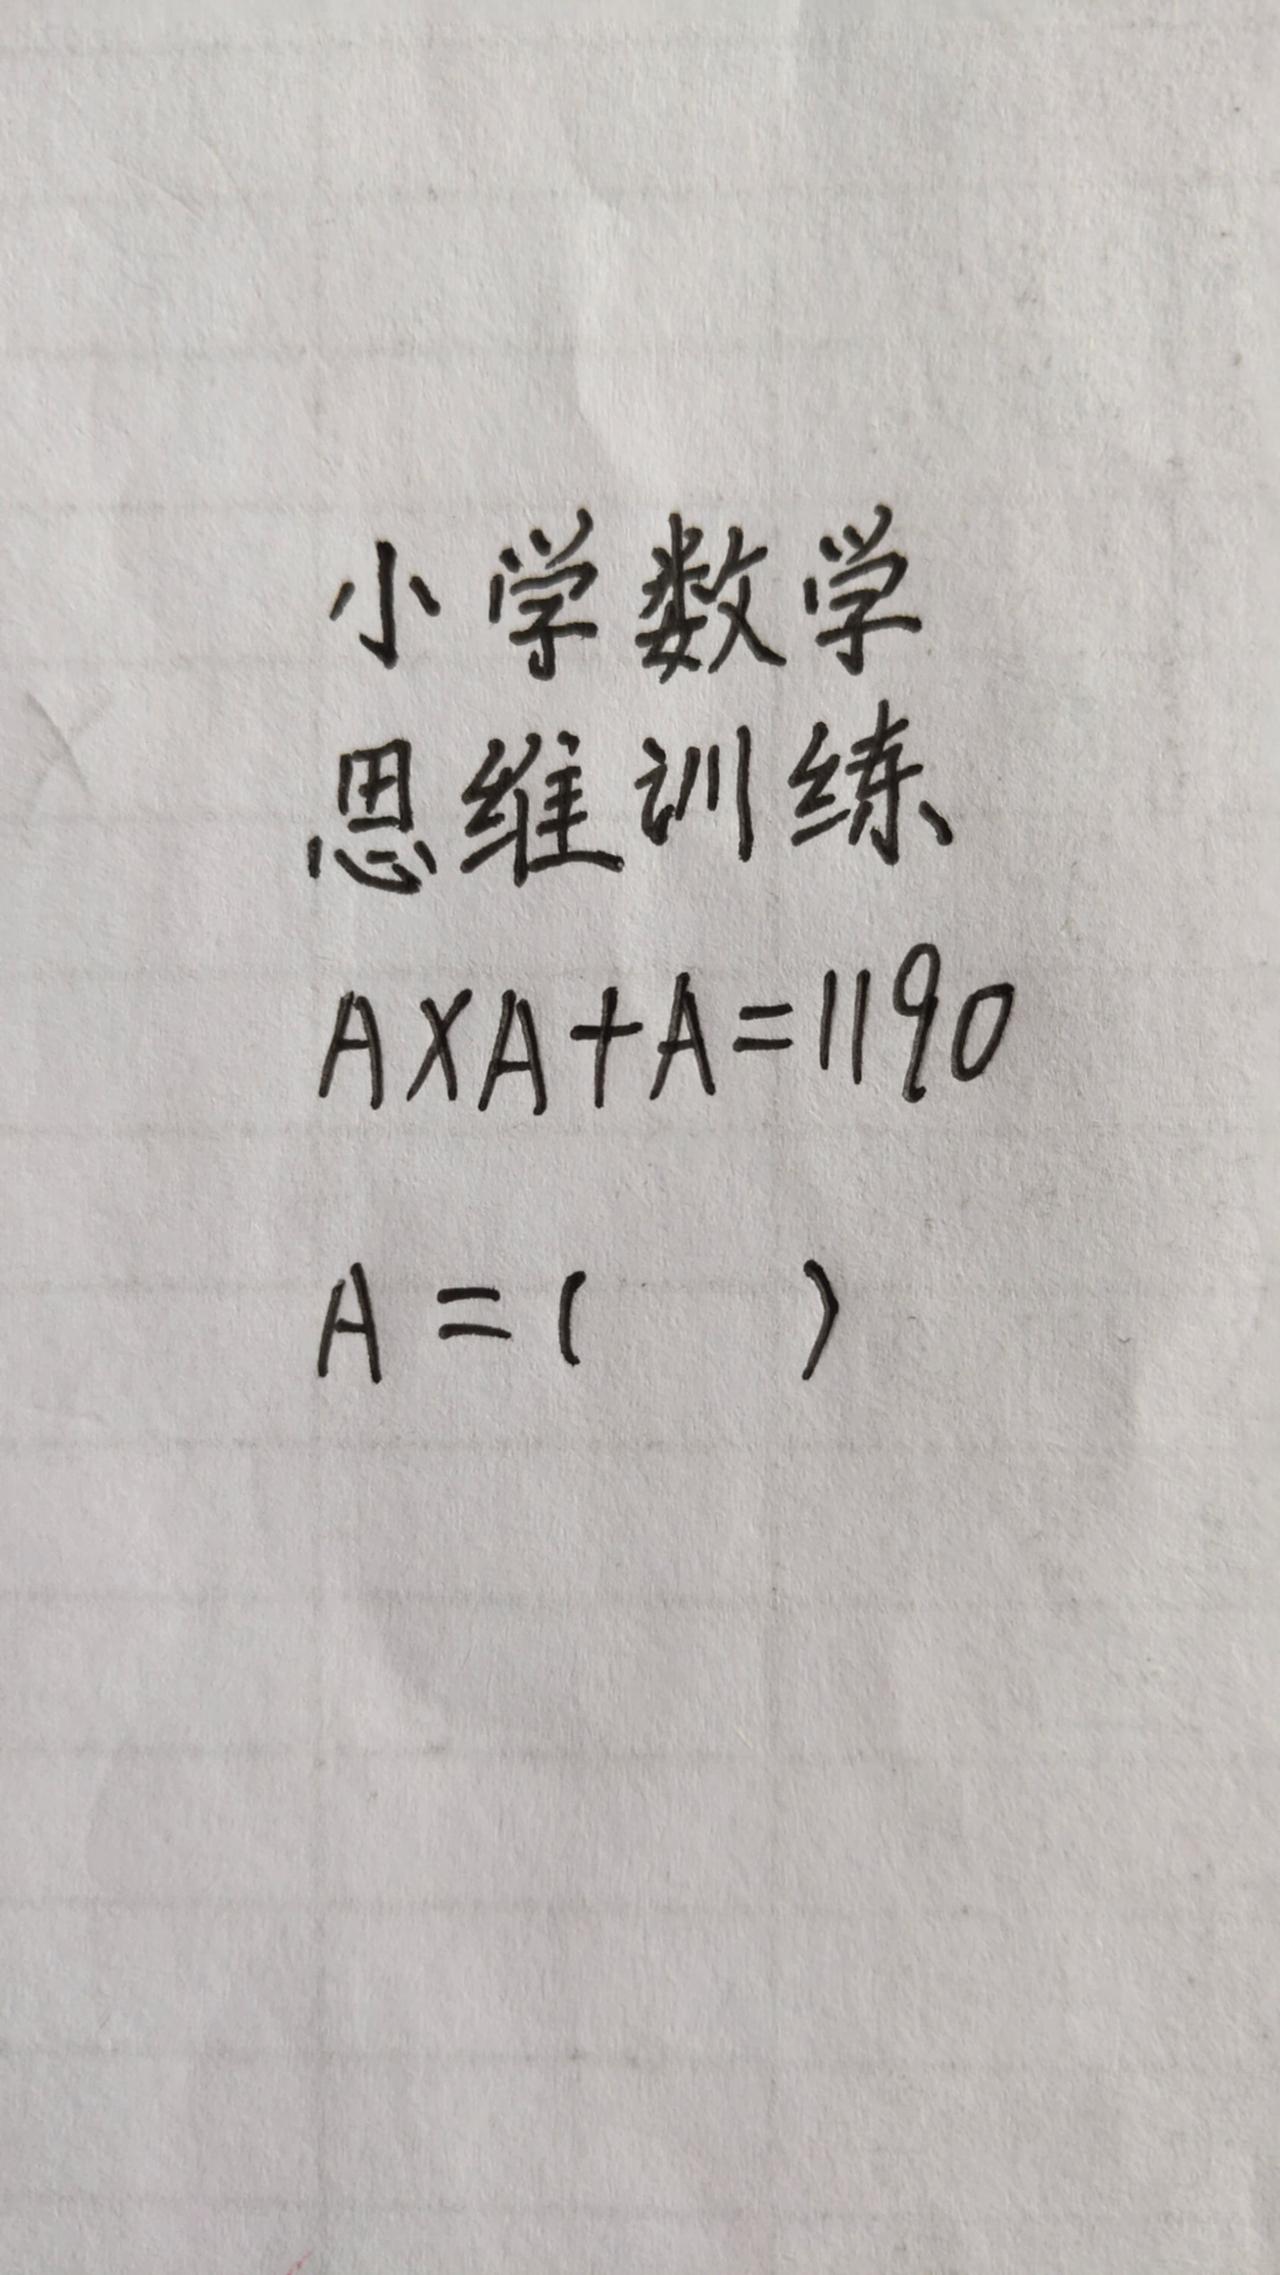 小学数学
思维训练
A×A+A=1190
A=( )